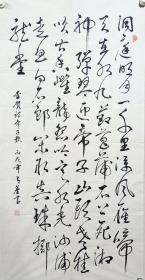 洞庭明月一千里涼風雁啼
天在水九節菖蒲石上死湘
神彈琴迎帝子山頭老桂
吹古香雌龍怨吟寒水光沙浦
走魚白石郎閒取真珠擲
龍堂
李賀詩帝子歌 丙戌年